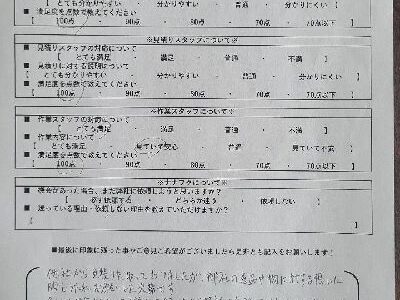 [ とても分かりやすい ・ 分かりやすい ・ 普通 ・ 分かりにくい ]
■ 満足度を点数で教えてください
[ 100点 ・ 90点 ・ 80点 ・ 70点 ・ 70点以下 ]
※見積りスタッフについて※
■ 見積りスタッフの対応について
[ とても満足 ・ 満足 ・ 普通 ・ 不満 ]
■ 見積りに対する説明について
[ とても分かりやすい ・ 分かりやすい ・ 普通 ・ 分かりにくい ]
■ 満足度を点数で教えてください
[ 100点 ・ 90点 ・ 80点 ・ 70点 ・ 70点以下 ]
※作業スタッフについて※
■ 作業スタッフの対応について
[ とても満足 ・ 満足 ・ 普通 ・ 不満 ]
■ 作業内容について
[ とても満足 ・ 見ていて安心 ・ 普通 ・ 見ていて不安 ]
■ 満足度を点数で教えてください
[ 100点 ・ 90点 ・ 80点 ・ 70点 ・ 70点以下 ]
※ナナフクについて※
■ 機会があった場合、また弊社に依頼しようと思いますか?
[ 必ず依頼する ・ どちらか迷う ・ 依頼しない ]
■ 迷っている理由・依頼しない理由を教えていただけますか?
[ ]
■最後に印象に残った事やご意見ご希望がございましたら是非とも記入をお願いします!